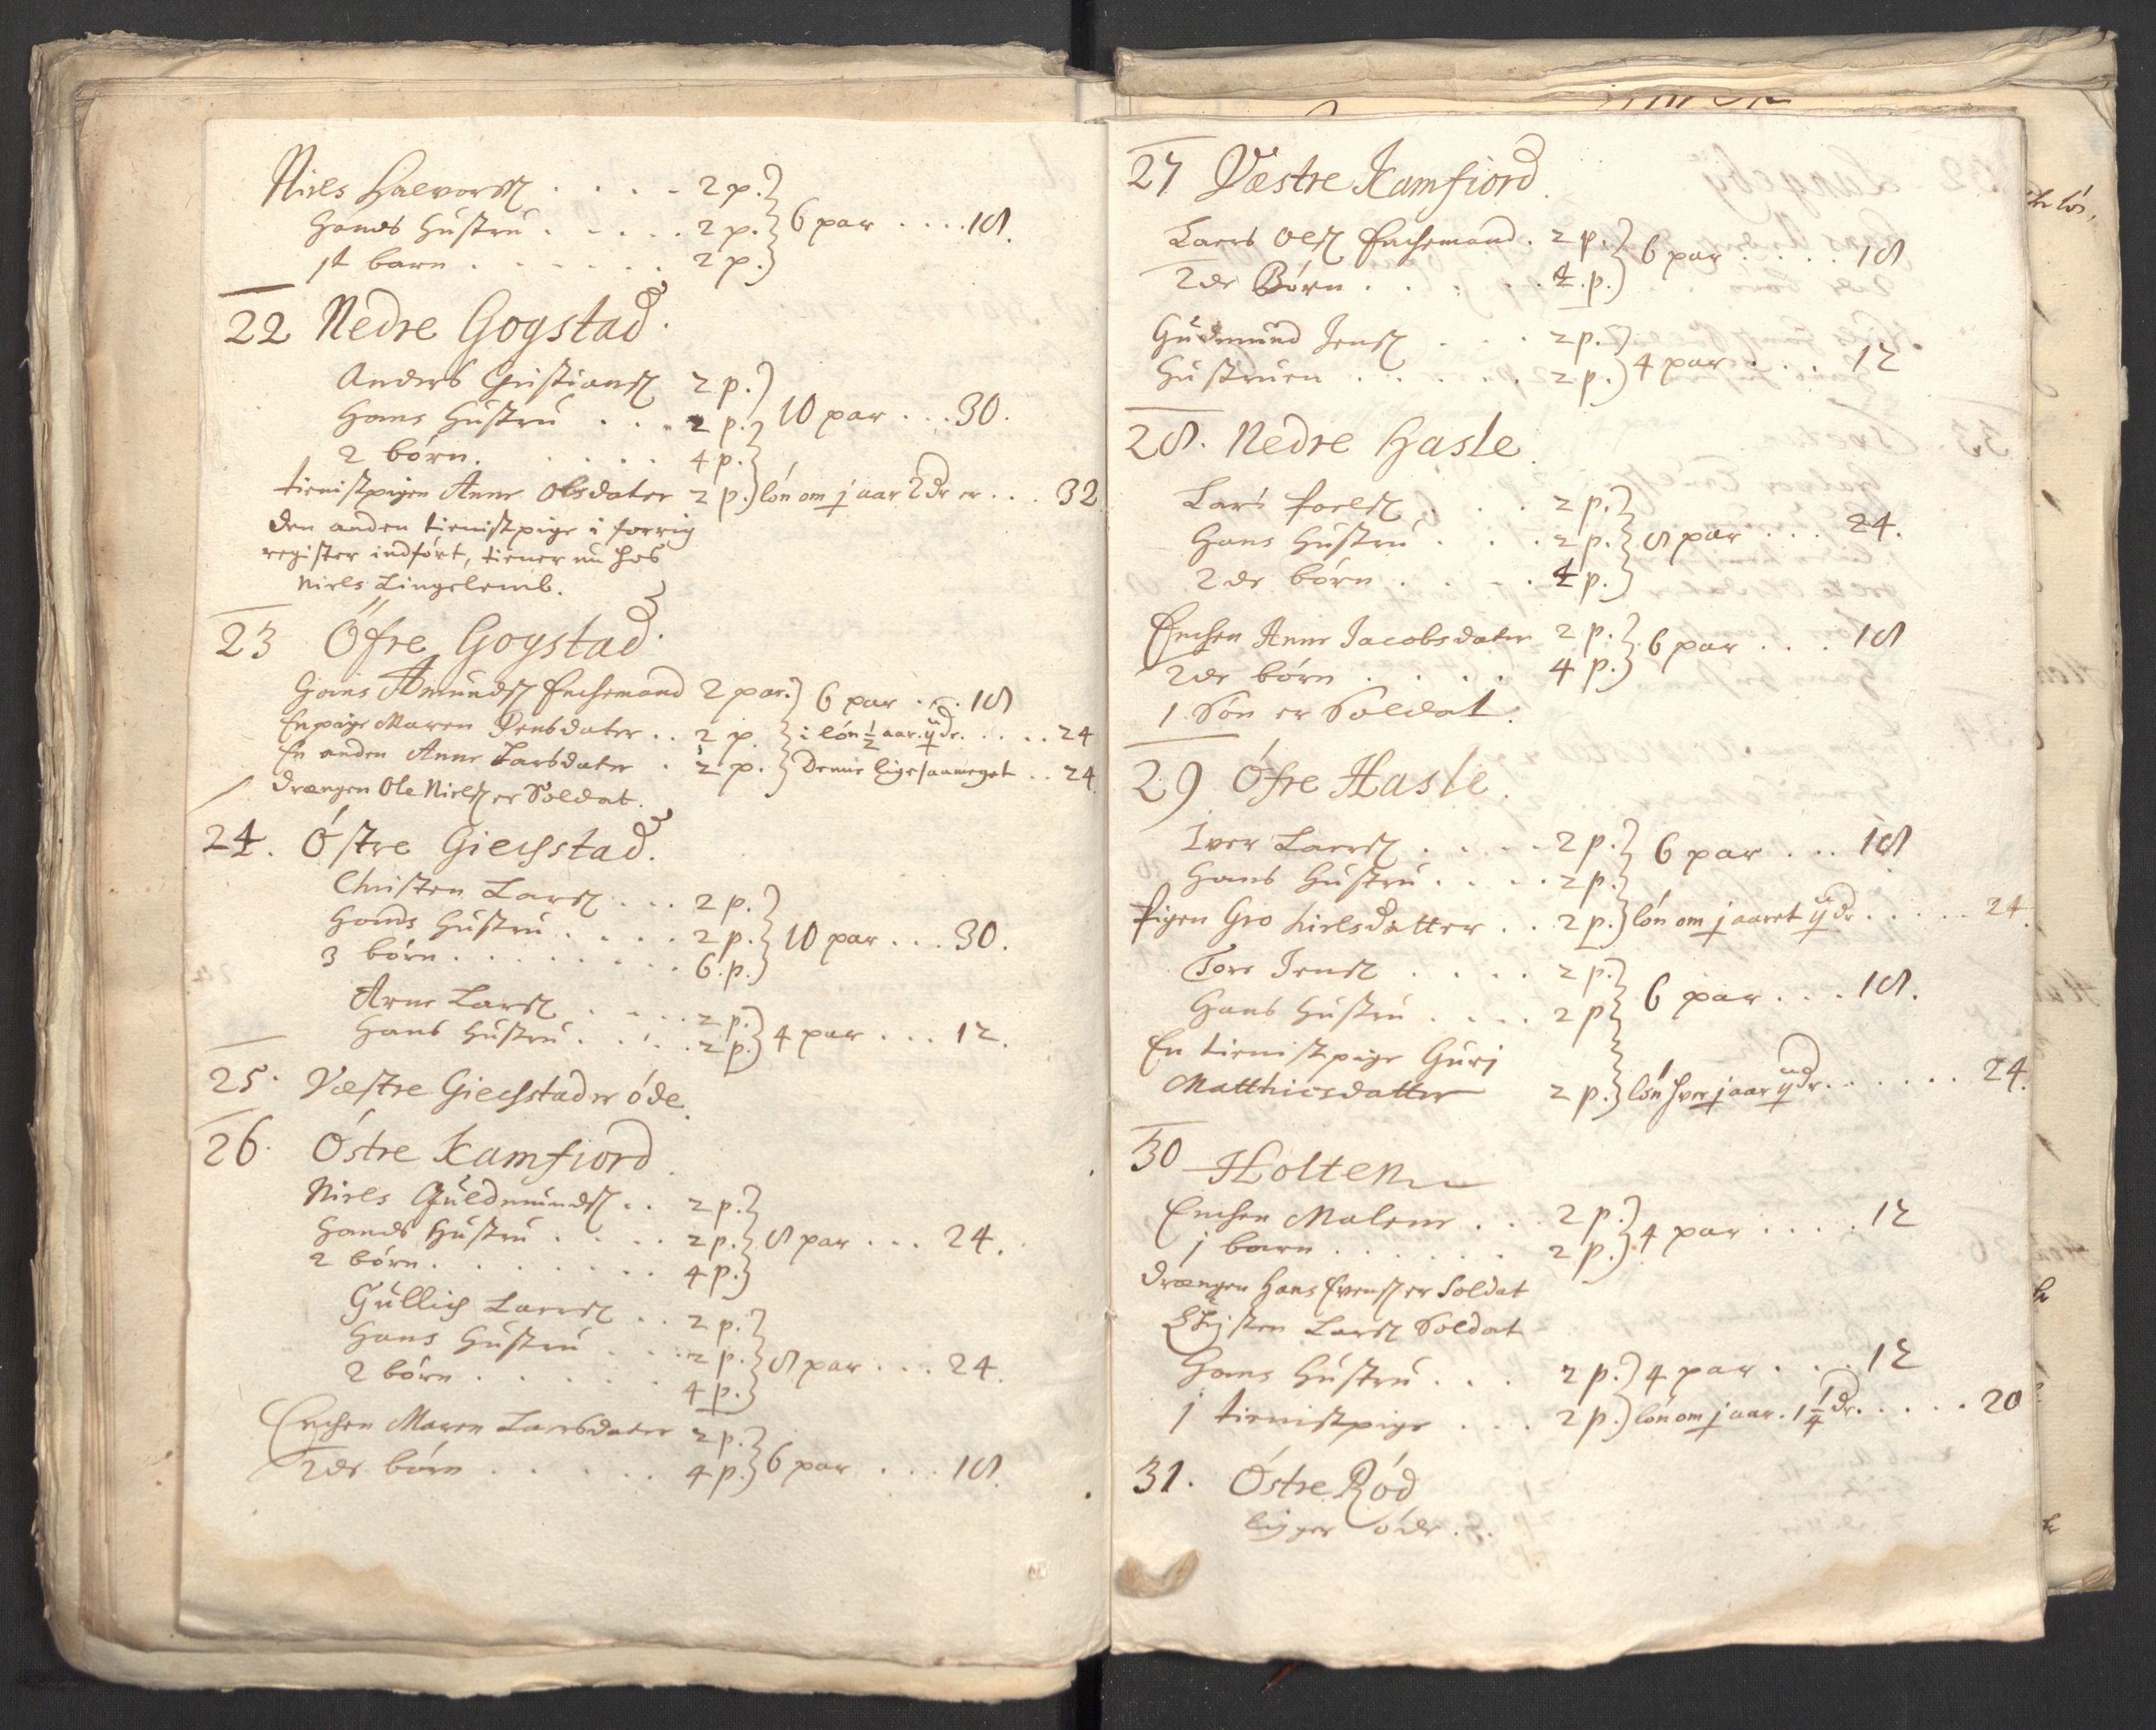 Niels Halvorss. . . . . 2 p.
Hands Hustru . . . . . 2 p. } 6 par . . . . 18.
1t barn . . . . . . . 2 p.
22 Nedre Gogstad.
Anders Christianss 2 p.
Hans Hustru . . . . 2 p. } 10 par . . . 30.
2 börn. . . . . . 4 p.
tienistpigen Anne Olsdater 2 p. lön om j aar 2 dr er . . . 32
den anden tienistpige i forrig
register indfört, tiener nu hos
Niels Lingelemb.
23 Öfre Gogstad.
Hans Amundss Enchemand 2 par. } 6 par . . . 18
En pige Maren Jensdater . . 2 p. } i lön ½ aar. ij dr. . . . . 24
En anden Anne Larsdater . 2 p. } Denne lige saameget . . 24.
Drængen Ole Nielss er Soldat.
24. Östre Giechstad.
Christen Larss . . . 2 p.
Hands Hustru . . . . 2 p. } 10 par . . . 30.
3 börn . . . . . . . . 6. p.
Arne Larss . . . . 2 p.
Hans Hustru . . . . 2 p. } 4 par . . . 12.
25. Væstre Giechstad er öde.
26. Östre Kamfiord.
Niels Guldmundss . . 2 p.
Hands Hustru . . . . 2 p. } 8 par . . . 24.
2 börn . . . . . . . 4 p.
Gullich Larss . . 2 p.
Hans Hustru . . . . 2 p. } 8 par . . . 24.
2 börn . . . . . . 4 p.
Enchen Maren Larsdater 2 p.
2de börn . . . . . . 4 p. } 6 par . . . 18.
27 Væstre Kamfiord.
Laers Olss Enchemand . 2 p. } 6 par . . . . 18
2de Börn . . . . . . 4. p.
Gudmund Jenss . . . 2 p.
Hustruen . . . . . . 2 p. } 4 par . . . . 12
28. Nedre Hasle.
Lars Poelss . . . 2 p.
Hans Hustru . . . 2 p. } 8 par . . . 24.
2de börn . . . . . 4 p.
Enchen Anne Jacobsdater 2 p. } 6 par . . . 18
2de börn . . . . . 4 p.
1. Sön er Soldat.
29 Öfre Hasle.
Iver Larss . . . . 2 p. } 6 par . . . 18
Hans Hustru . . . . 2 p.
Pigen Gro Nielsdatter . . 2 p. } lön om j aaret ij dr . . . . . 24.
Tore Jenss . . . . 2 p.
Hans Hustru . . . . 2 p } 6 par . . . 18.
En tienistpige Gurj
Matthiesdatter 2 p. } lön hver j aar ij dr. . . . . . . 24.
30 Holten
Enchen Malene . . . 2 p.
j barn . . . . . . . 2 p. } 4 par . . . . . 12
Drængen Hans Evenss er Soldat
Christen Larss Soldat
Hans Hustru . . . 2 p. } 4 par . . . . 12
j tienistpige . . . 2 p. } lön om j aar. 1¼ dr. . . . . . 20
31. Östre Röd
ligger öde . .